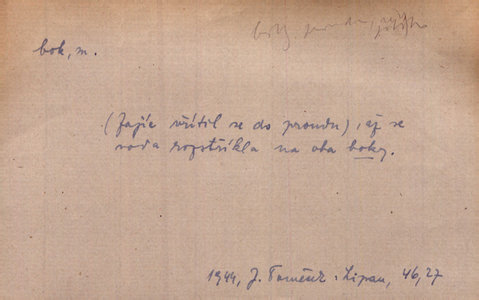 bok, m.
(Zajíc vřítil se do proudu), až se
voda rozstřikla na oba boky.
1944, J. Tomeček: Lipan, 46,27